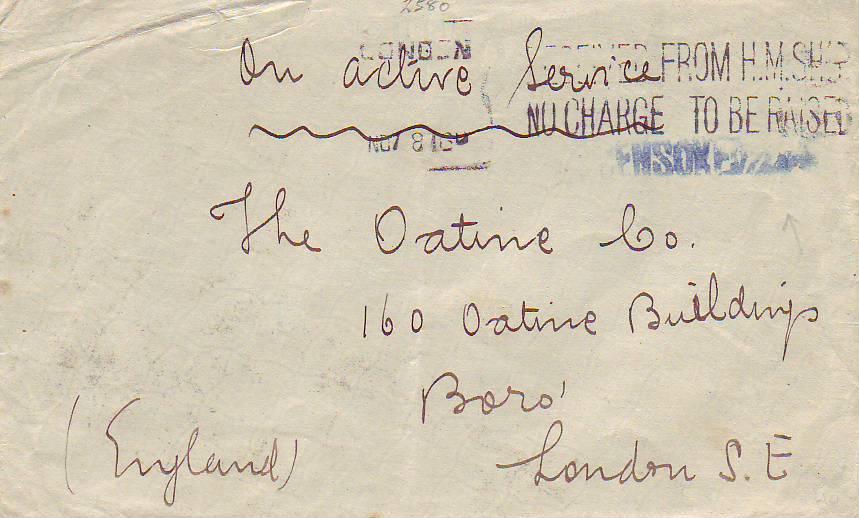 2580
LONDON
RECEIVED FROM H.M.SHIP
NO CHARGE TO BE RAISED
On active Service
NOV 8
The Oatine Co.
160 Oatine Buildings
Boro'
London S.E
(England)